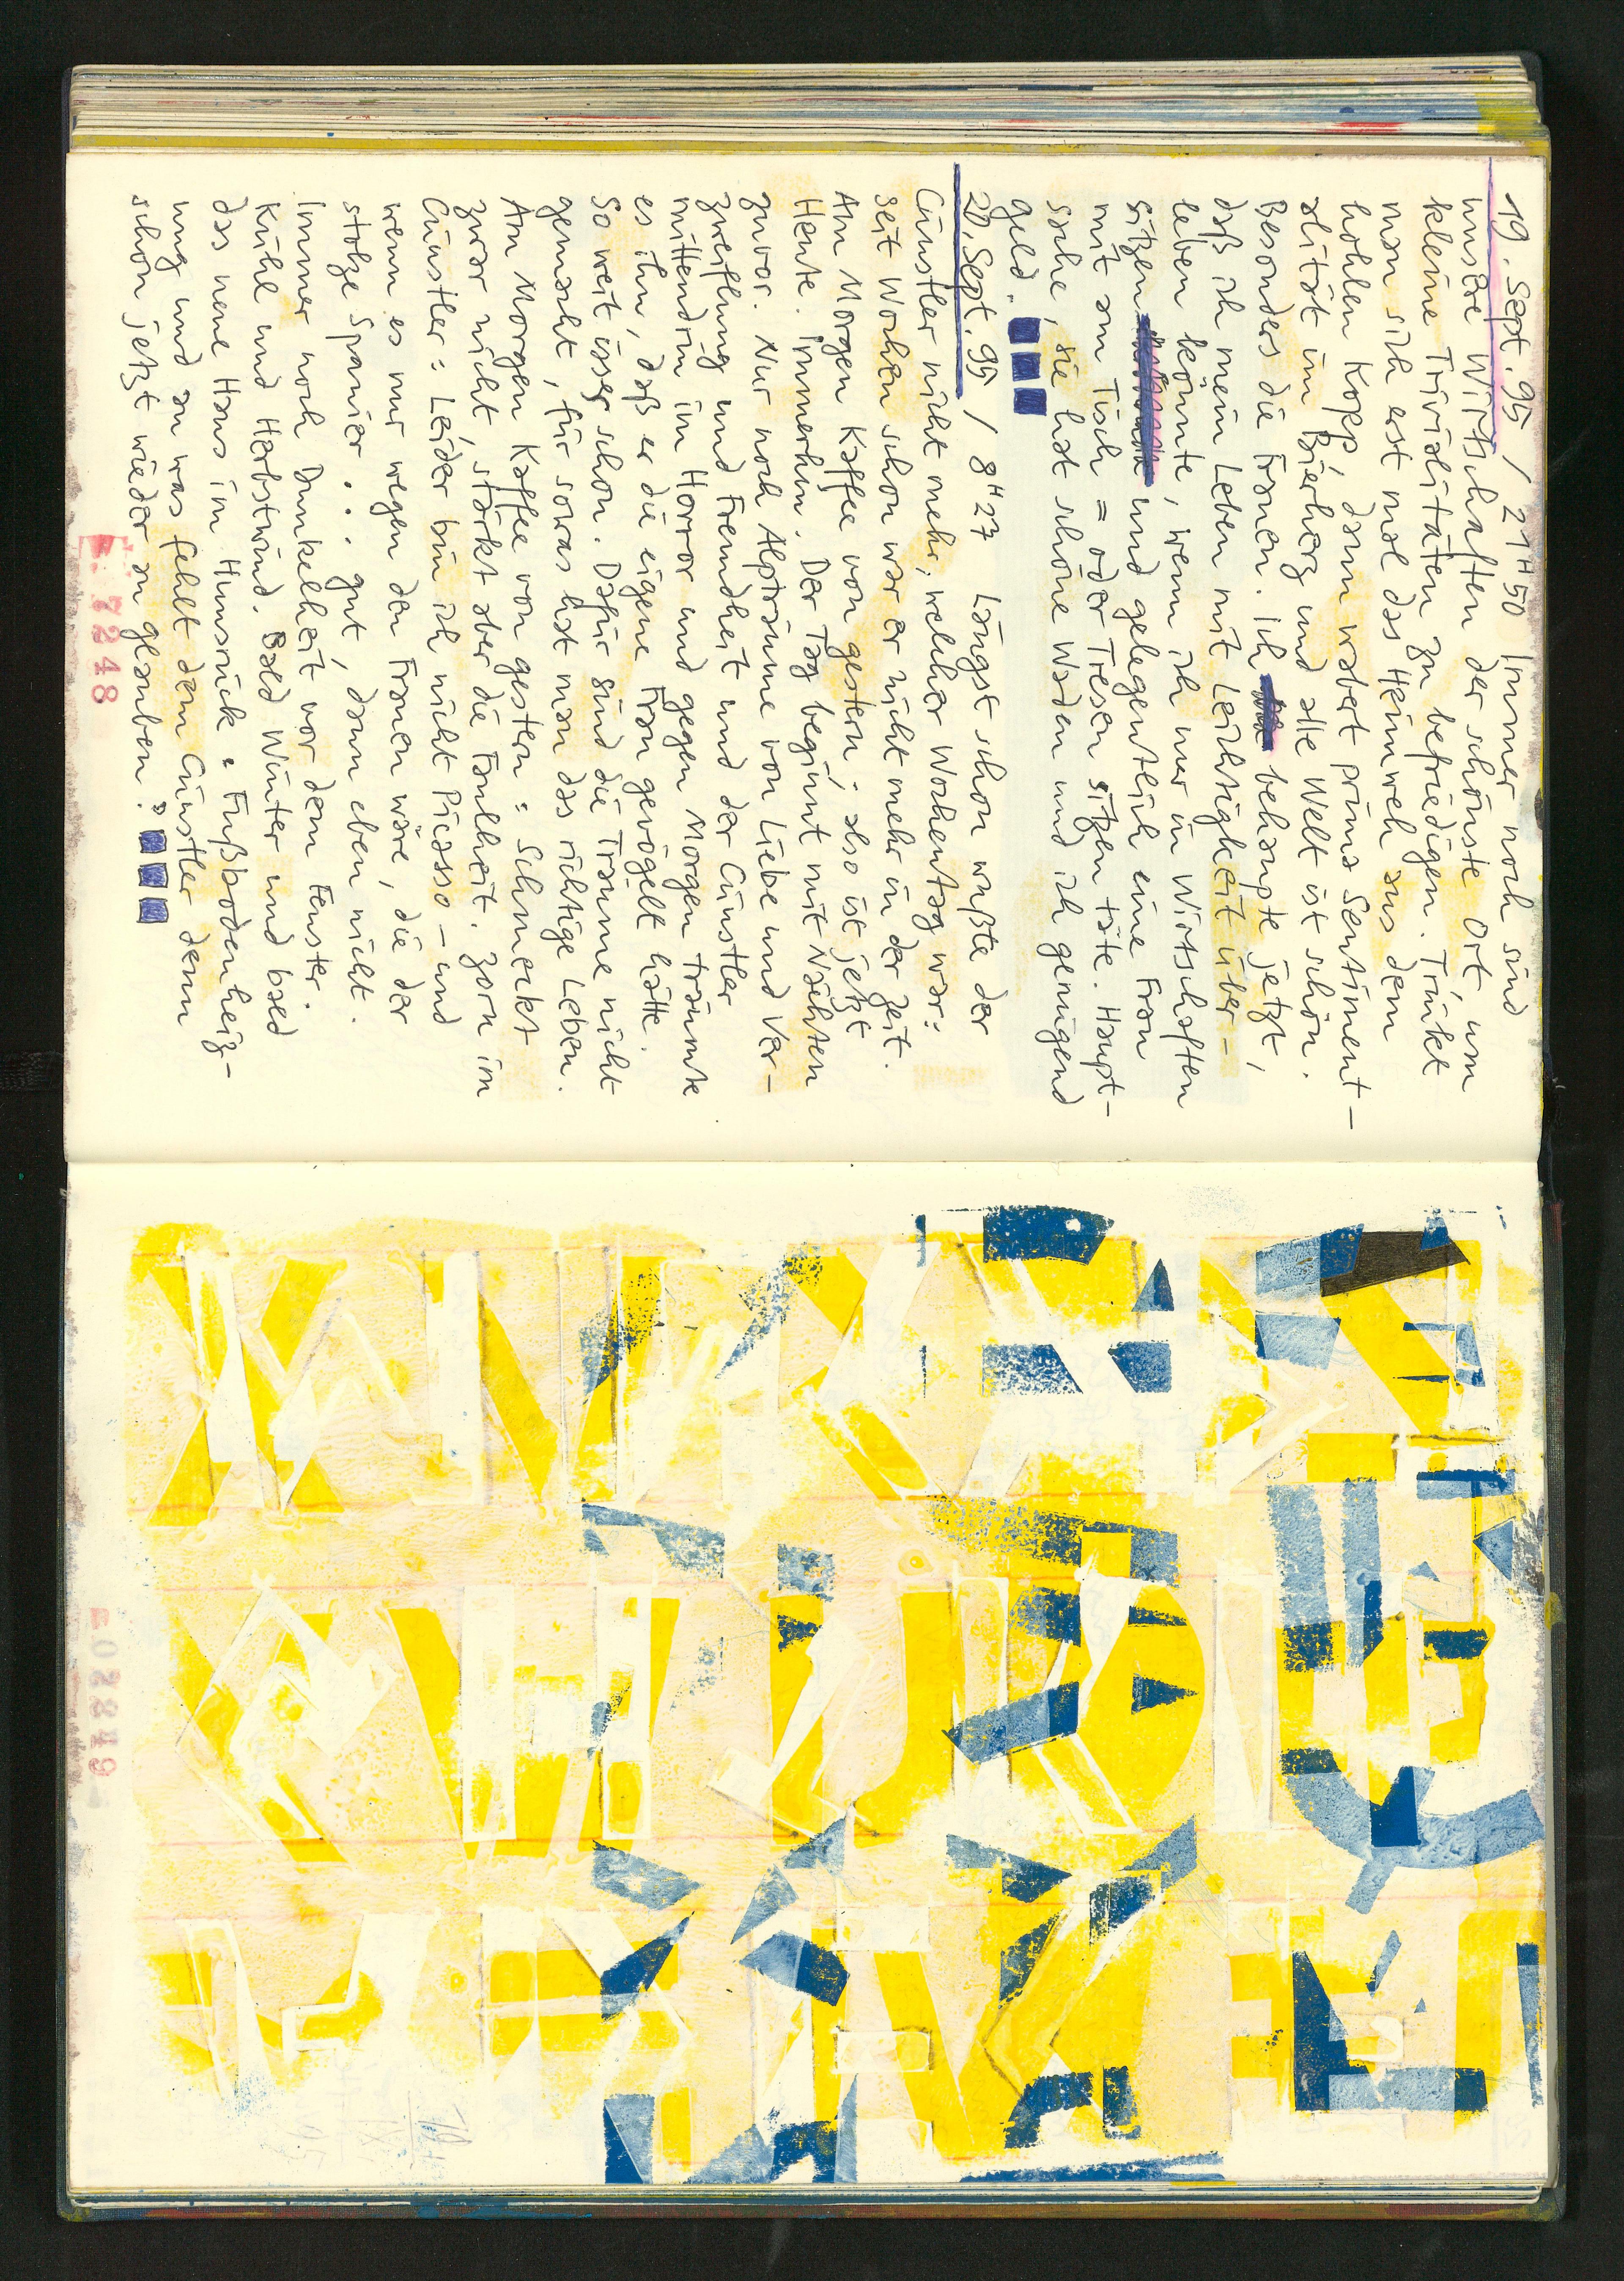 19. Sept. 95 / 21H50 Immer noch sind
unsre Wirtschaften der schönste Ort, um
kleine Trivialitäten zu befriedigen. Trinkt
man sich erst mal das Heimweh aus dem
hohlen Kopp, dann wabert prima Sentiment-
alität im Bierherz und alle Welt ist schön.
Besonders die Frauen. Ich behaupte jetzt,
daß ich mein Leben mit Leichtigkeit über-
leben könnte, wenn ich nur in Wirtschaften
sitzen und gelegentlich eine Frau
mit am Tisch = oder Tresen sitzen täte. Haupt-
sache, sie hat schöne Waden und ich genügend
geld.
20. Sept. 95 / 8H27 Längst schon wußte der
Cünstler nicht mehr, welcher Wochentag war:
seit Wochen schon war er nicht mehr in der Zeit.
Am Morgen Kaffee von gestern; also ist jetzt
Heute. Immerhin. Der Tag beginnt mit Nächten
zuvor. Nur noch Alpträume von Liebe und Ver-
zweiflung und Fremdheit und der Cünstler
mittendrin im Horror und gegen Morgen träumte
es ihn, daß er die eigene Frau gevögelt hätte.
So weit isser schon. Dafür sind die Träume nicht
gemacht, für sowas hat man das richtige Leben.
Am Morgen Kaffee von gestern: schmeckt
zwar nicht, stärkt aber die Faulheit. Zorn im
Cünstler: Leider bin ich nicht Picasso – und
wenn es nur wegen der Frauen wäre, die der
stolze Spanier . . . gut, dann eben nicht.
Immer noch Dunkelheit vor dem Fenster.
Kühle und Herbstwind. Bald Winter und bald
das neue Haus im Hunsrück. Fußbodenheiz-
ung und an was fehlt dem Cünstler denn
schon jetzt wieder zu glauben?
7248
02849